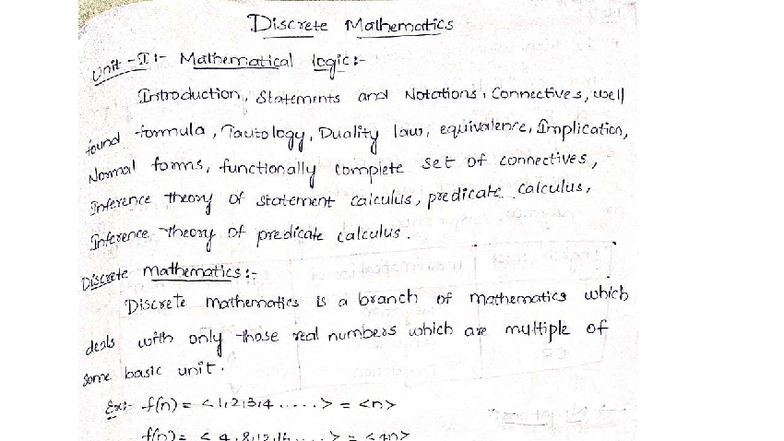 Discrete Mathematics
Unit -I:- Mathematical logic:-
Introduction, Statements and Notations, Connectives, well
found formula, Tautology, Duality law, equivalence, Implication,
Normal forms, functionally complete set of connectives,
Inference theory of statement calculus, predicate calculus,
Inference theory of predicate calculus.
Discrete mathematics:-
Discrete mathematics is a branch of mathematics which
deals with only those real numbers which are multiple of
some basic unit.
Ex:- f(n) = <1,2,3,4.....> = <n>
f(n) = < 4,8,12,16.....> = <4n>